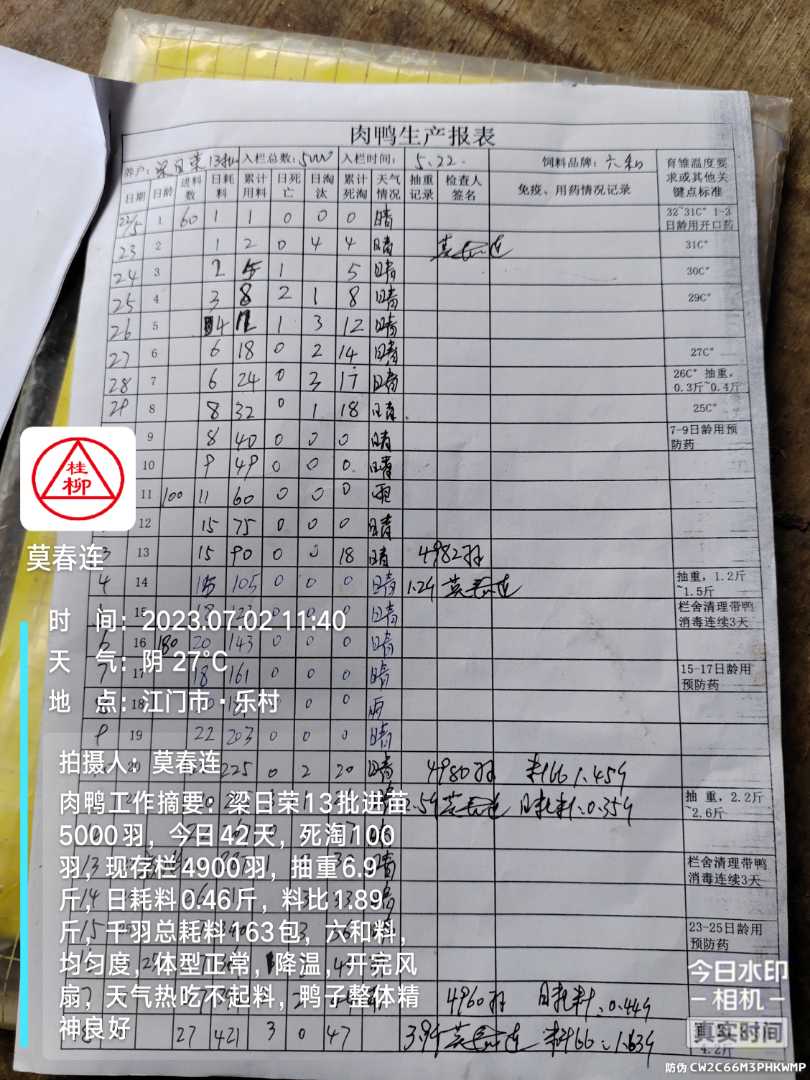 肉鸭生产报表
养户: 梁日荣13批 入栏总数: 5000 入栏时间: 5.22. 饲料品牌: 六和 育雏温度要求或其他关键点标准
日期 日龄 进料数 日耗料 累计用料 日死亡 日淘汰 累计死淘 天气情况 抽重记录 检查人签名 免疫、用药情况记录
22/5 1 60 1 1 0 0 0 晴 32~31C° 1-3日龄用开口药
23 2 1 2 0 4 4 晴 莫春连 31C°
24 3 2 5 1 5 晴 30C°
25 4 3 8 2 1 8 晴 29C°
26 5 4 12 1 3 12 晴
27 6 6 18 0 2 14 晴 27C°
28 7 6 24 0 3 17 晴 26C° 抽重, 0.3斤~0.4斤
29 8 8 32 0 1 18 晴. 25C°
9 8 40 0 0 0 晴 7-9日龄用预防药
10 9 49 0 0 0. 晴
11 100 11 60 0 0 0 雨
12 15 75 0 0 0 晴
3 13 15 90 0 0 18 晴 4982羽
4 14 15 105 0 0 0 晴 1.2斤 莫春连 抽重, 1.2斤~1.5斤
15 18 0 0 0 晴 栏舍清理带鸭消毒连续3天
6 16 180 20 143 0 0 0 晴
7 17 18 161 0 0 0 晴 15-17日龄用预防药
18 0 0 0 雨
9 19 22 203 0 0 0 晴
20 225 0 2 20 晴 4980羽 料比1.45斤
2.5斤 莫春连 日耗料:0.35斤 抽重, 2.2斤~2.6斤
13 栏舍清理带鸭消毒连续3天
14
15 23-25日龄用预防药
4960羽 日耗料:0.44斤
27 421 3 0 47 3.9斤 莫春连 料比:1.63斤 4.2斤
桂柳
莫春连
时 间: 2023.07.02 11:40
天 气: 阴 27°C
地 点: 江门市·乐村
拍摄人: 莫春连
肉鸭工作摘要: 梁日荣13批进苗
5000羽, 今日42天, 死淘100
羽, 现存栏4900羽, 抽重6.9
斤, 日耗料0.46斤, 料比1.89
斤, 千羽总耗料163包, 六和料,
均匀度, 体型正常, 降温, 开完风
扇, 天气热吃不起料, 鸭子整体精
神良好
今日水印
-相机-
真实时间
防伪 CW2C66M3PHKWMP